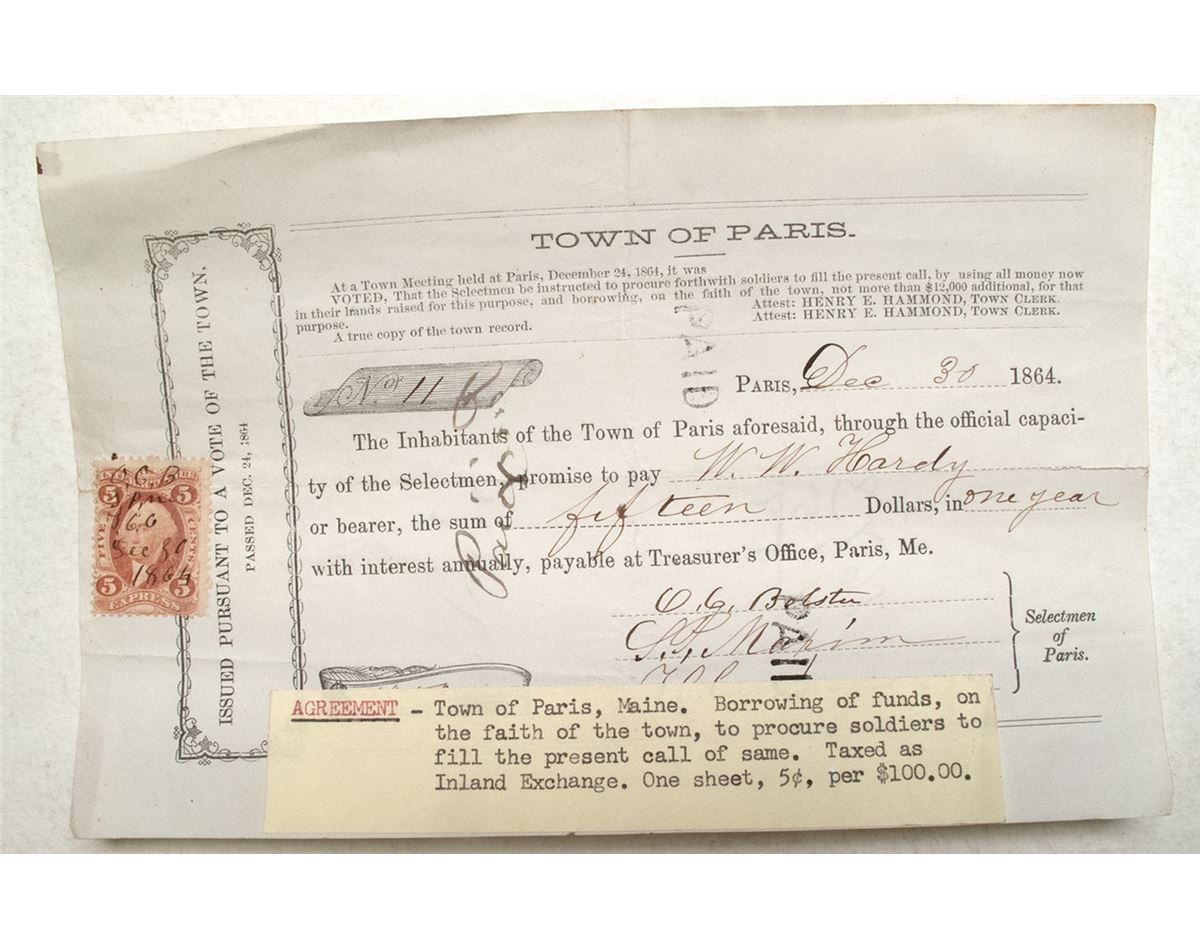 TOWN OF PARIS.
At a Town Meeting held at Paris, December 24, 1864, it was
VOTED, That the Selectmen be instructed to procure forthwith soldiers to fill the present call, by using all money now
in their hands raised for this purpose, and borrowing, on the faith of the town, not more than $12,000 additional, for that
purpose.
Attest: HENRY E. HAMMOND, TOWN CLERK.
A true copy of the town record.
Attest: HENRY E. HAMMOND, TOWN CLERK.
ISSUED PURSUANT TO A VOTE OF THE TOWN.
PASSED DEC. 24, 1864
PAID
No 11
PARIS, Dec 30 1864.
The Inhabitants of the Town of Paris aforesaid, through the official capaci-
ty of the Selectmen, promise to pay W. W. Hardy
or bearer, the sum of fifteen Dollars, in one year
with interest annually, payable at Treasurer's Office, Paris, Me.
Paid
5 5
FIVE CENTS
Dec 30
1864
5 5
EXPRESS
O. C. Bolster
S. P. Maxim
PAID
Selectmen
of
Paris.
AGREEMENT - Town of Paris, Maine. Borrowing of funds, on
the faith of the town, to procure soldiers to
fill the present call of same. Taxed as
Inland Exchange. One sheet, 5¢, per $100.00.